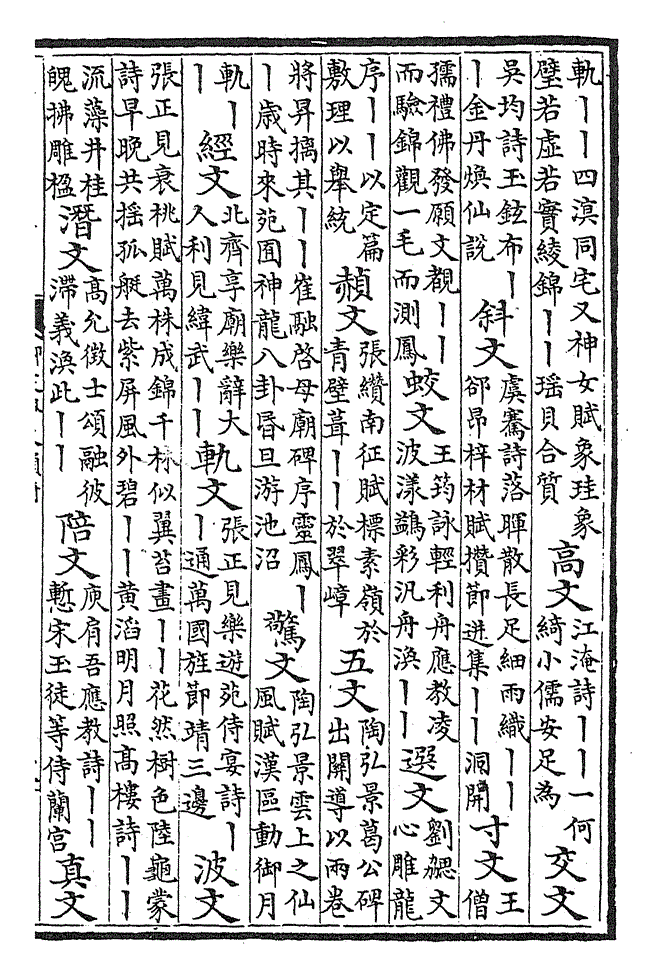 軌丨丨四溟同宅又神女賦象珪象
璧若虛若實綾錦丨丨瑤貝合質
高文
江淹詩丨丨一何
綺小儒安足為
交文
吳均詩玉鉉布丨
丨金丹煥仙說
斜文
虞騫詩落暉散長足細雨織丨丨
郤昂梓材賦攢節迸集丨丨洞開
寸文
王
僧
孺禮佛發願文覩丨丨
而驗錦觀一毛而測鳳
蛟文
王筠詠輕利舟應教凌
波漾鷁彩汎舟渙丨丨
選文
劉勰文
心雕龍
序丨丨以定篇
敷理以舉統
赬文
張纘南征賦標素嶺於
青壁葺丨丨於翠嶂
五文
陶弘景葛公碑
出關導以兩卷
將昇摛其丨丨崔融啓母廟碑序靈鳳丨
丨歲時來苑囿神龍八卦昏旦游池沼
驚文
陶弘景雲上之仙
風賦漢區動御月
軌丨
丨
經文
北齊享廟樂辭大
人利見緯武丨丨
軌文
張正見樂遊苑侍宴詩丨
丨通萬國旌節靖三邊
波文
張正見衰桃賦萬株成錦千林似翼苔畫丨丨花然樹色陸龜蒙
詩早晚共搖孤艇去紫屏風外碧丨丨黃滔明月照高樓詩丨丨
流藻井桂
魄拂雕楹
潛文
高允徵士頌融彼
滯義渙此丨丨
陪文
庾肩吾應教詩丨丨
慙宋玉徒等侍蘭宮
真文